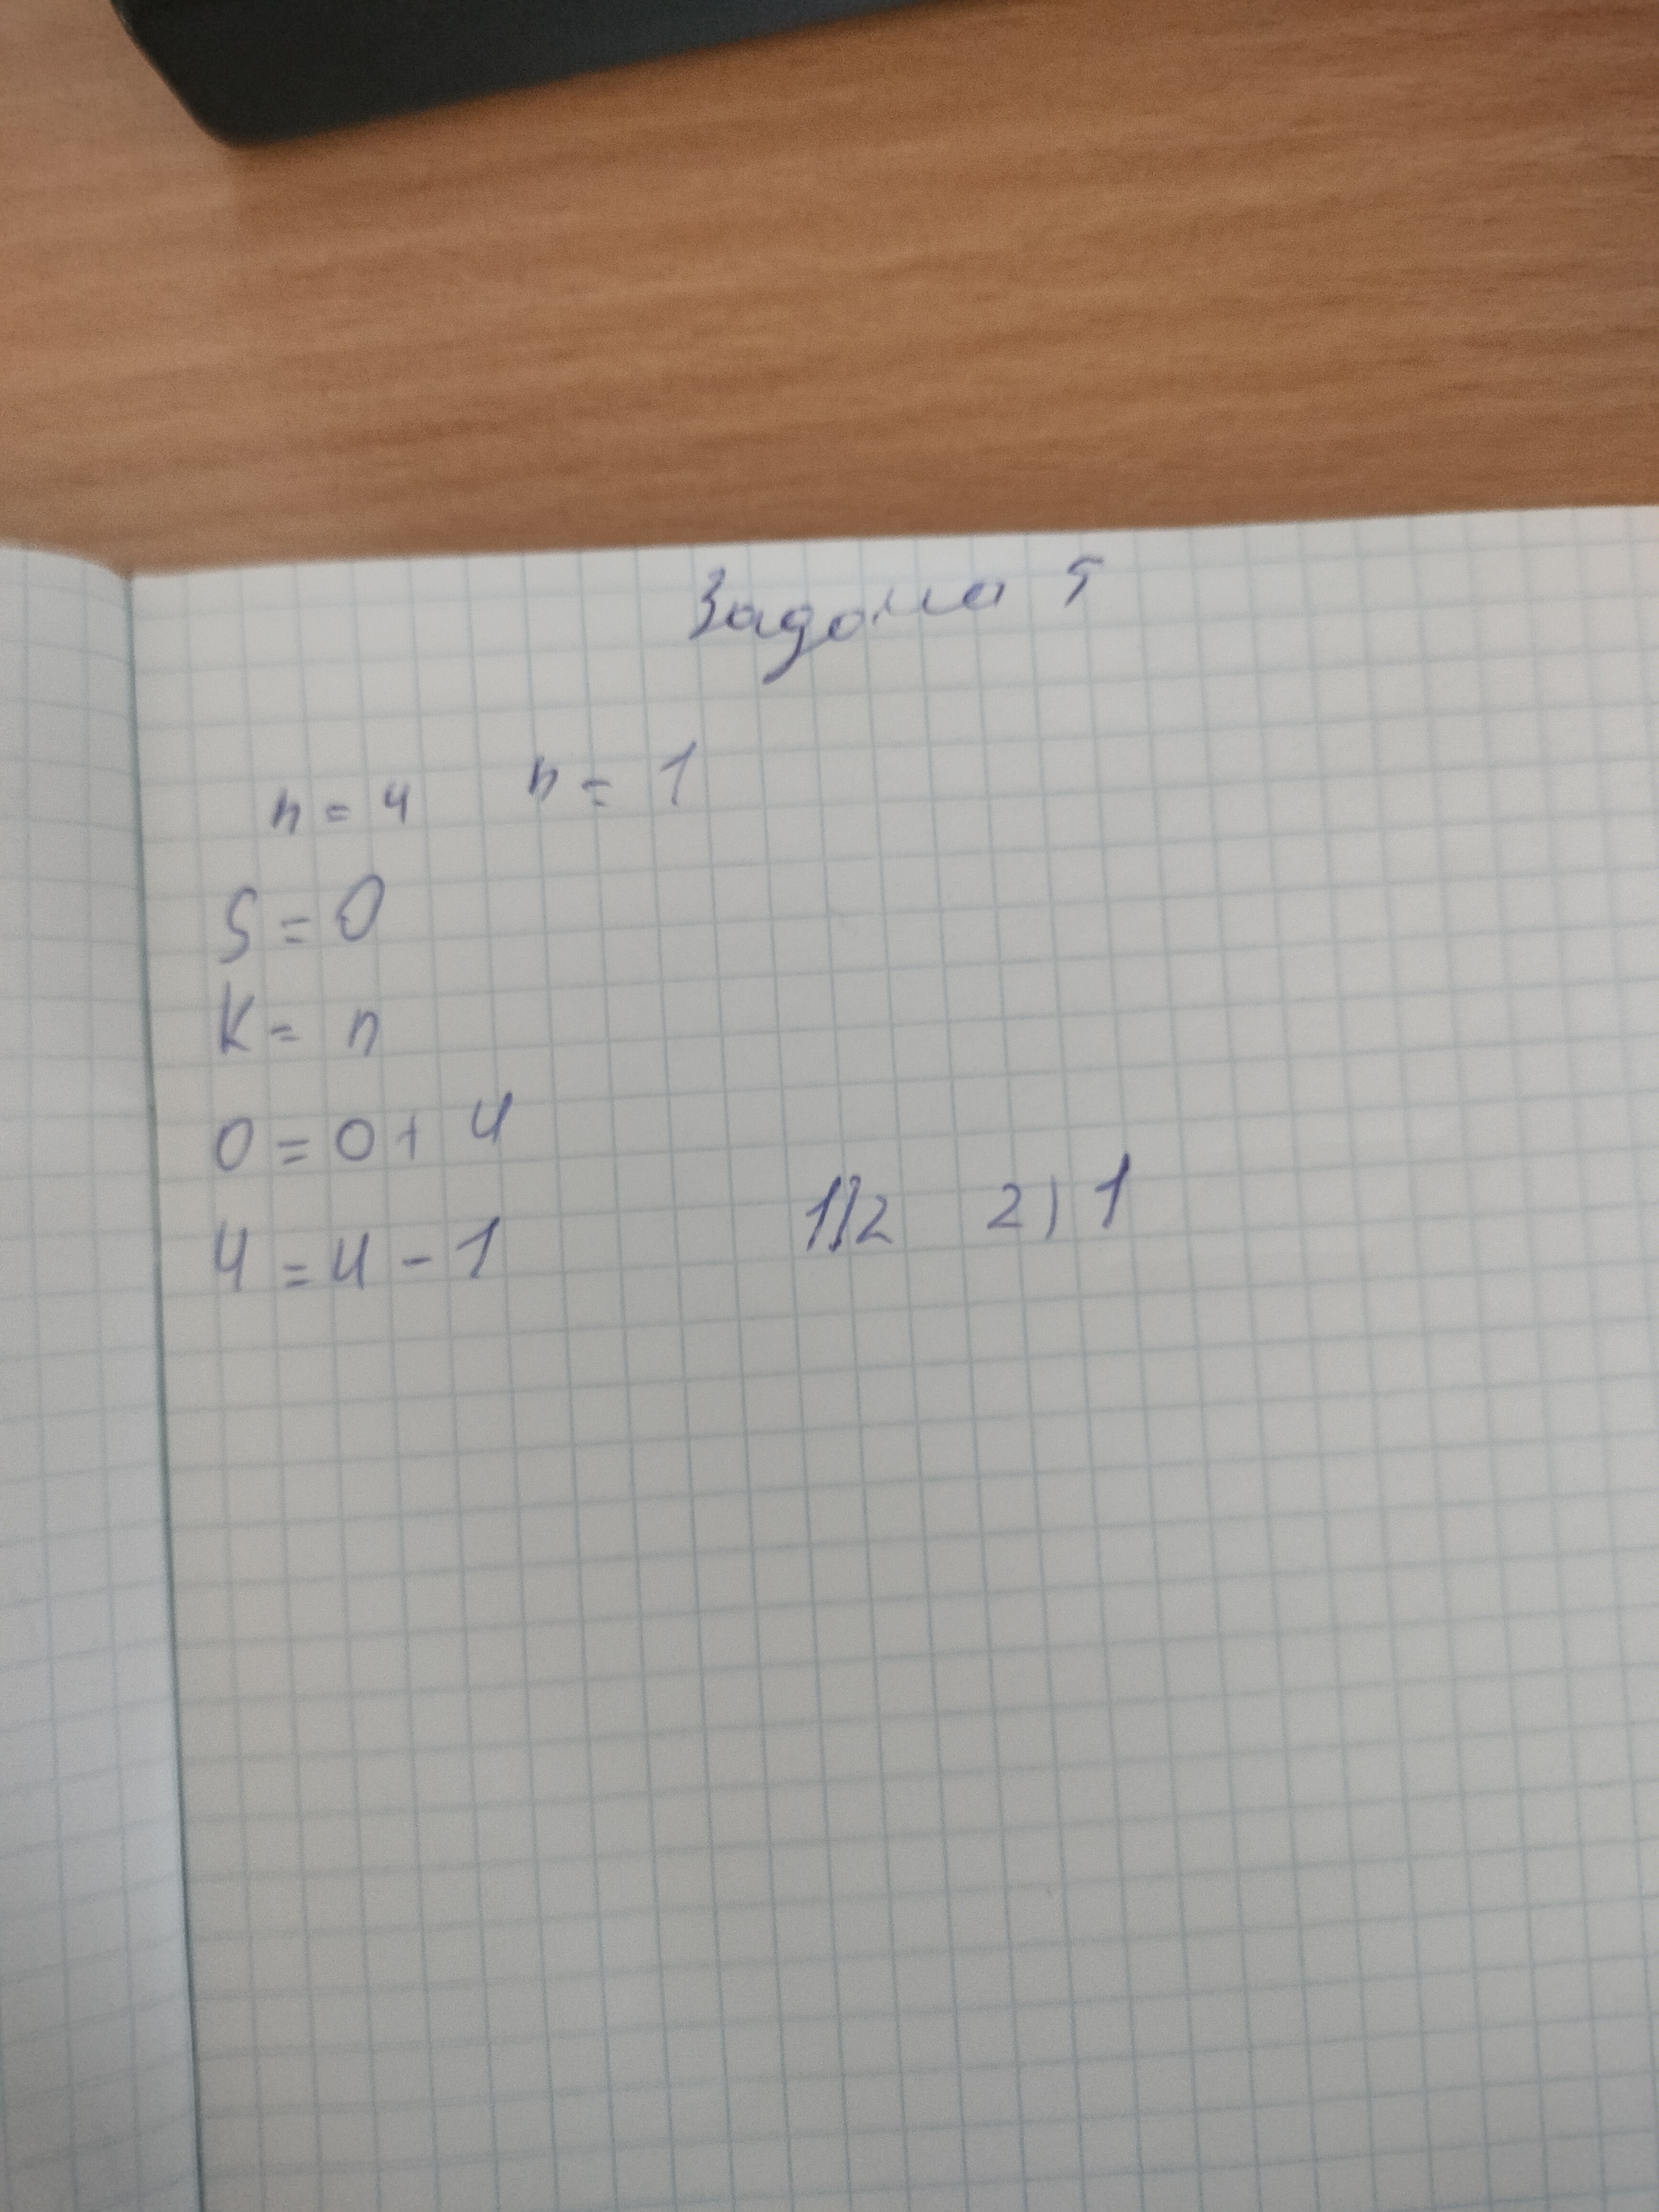 Задача 5
n = 4 n = 1
S = 0
K = n
0 = 0 + 4
4 = 4 - 1 1) 2 2) 1